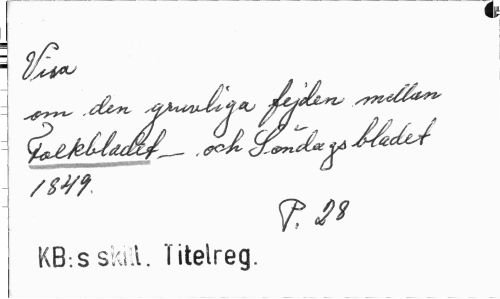 Visa
om den gruvliga fejden mellan
Folkbladet — och Söndagsbladet
1849.
P. 28
KB:s skill. Titelreg.